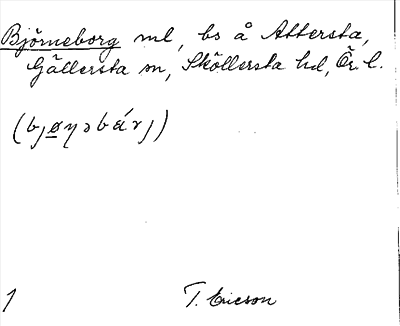 Björneborg ml, bs å Attersta,
Gällersta sn, Sköllersta hd, Ör. l.
(bjøŋəbárj)
1 T. Ericson